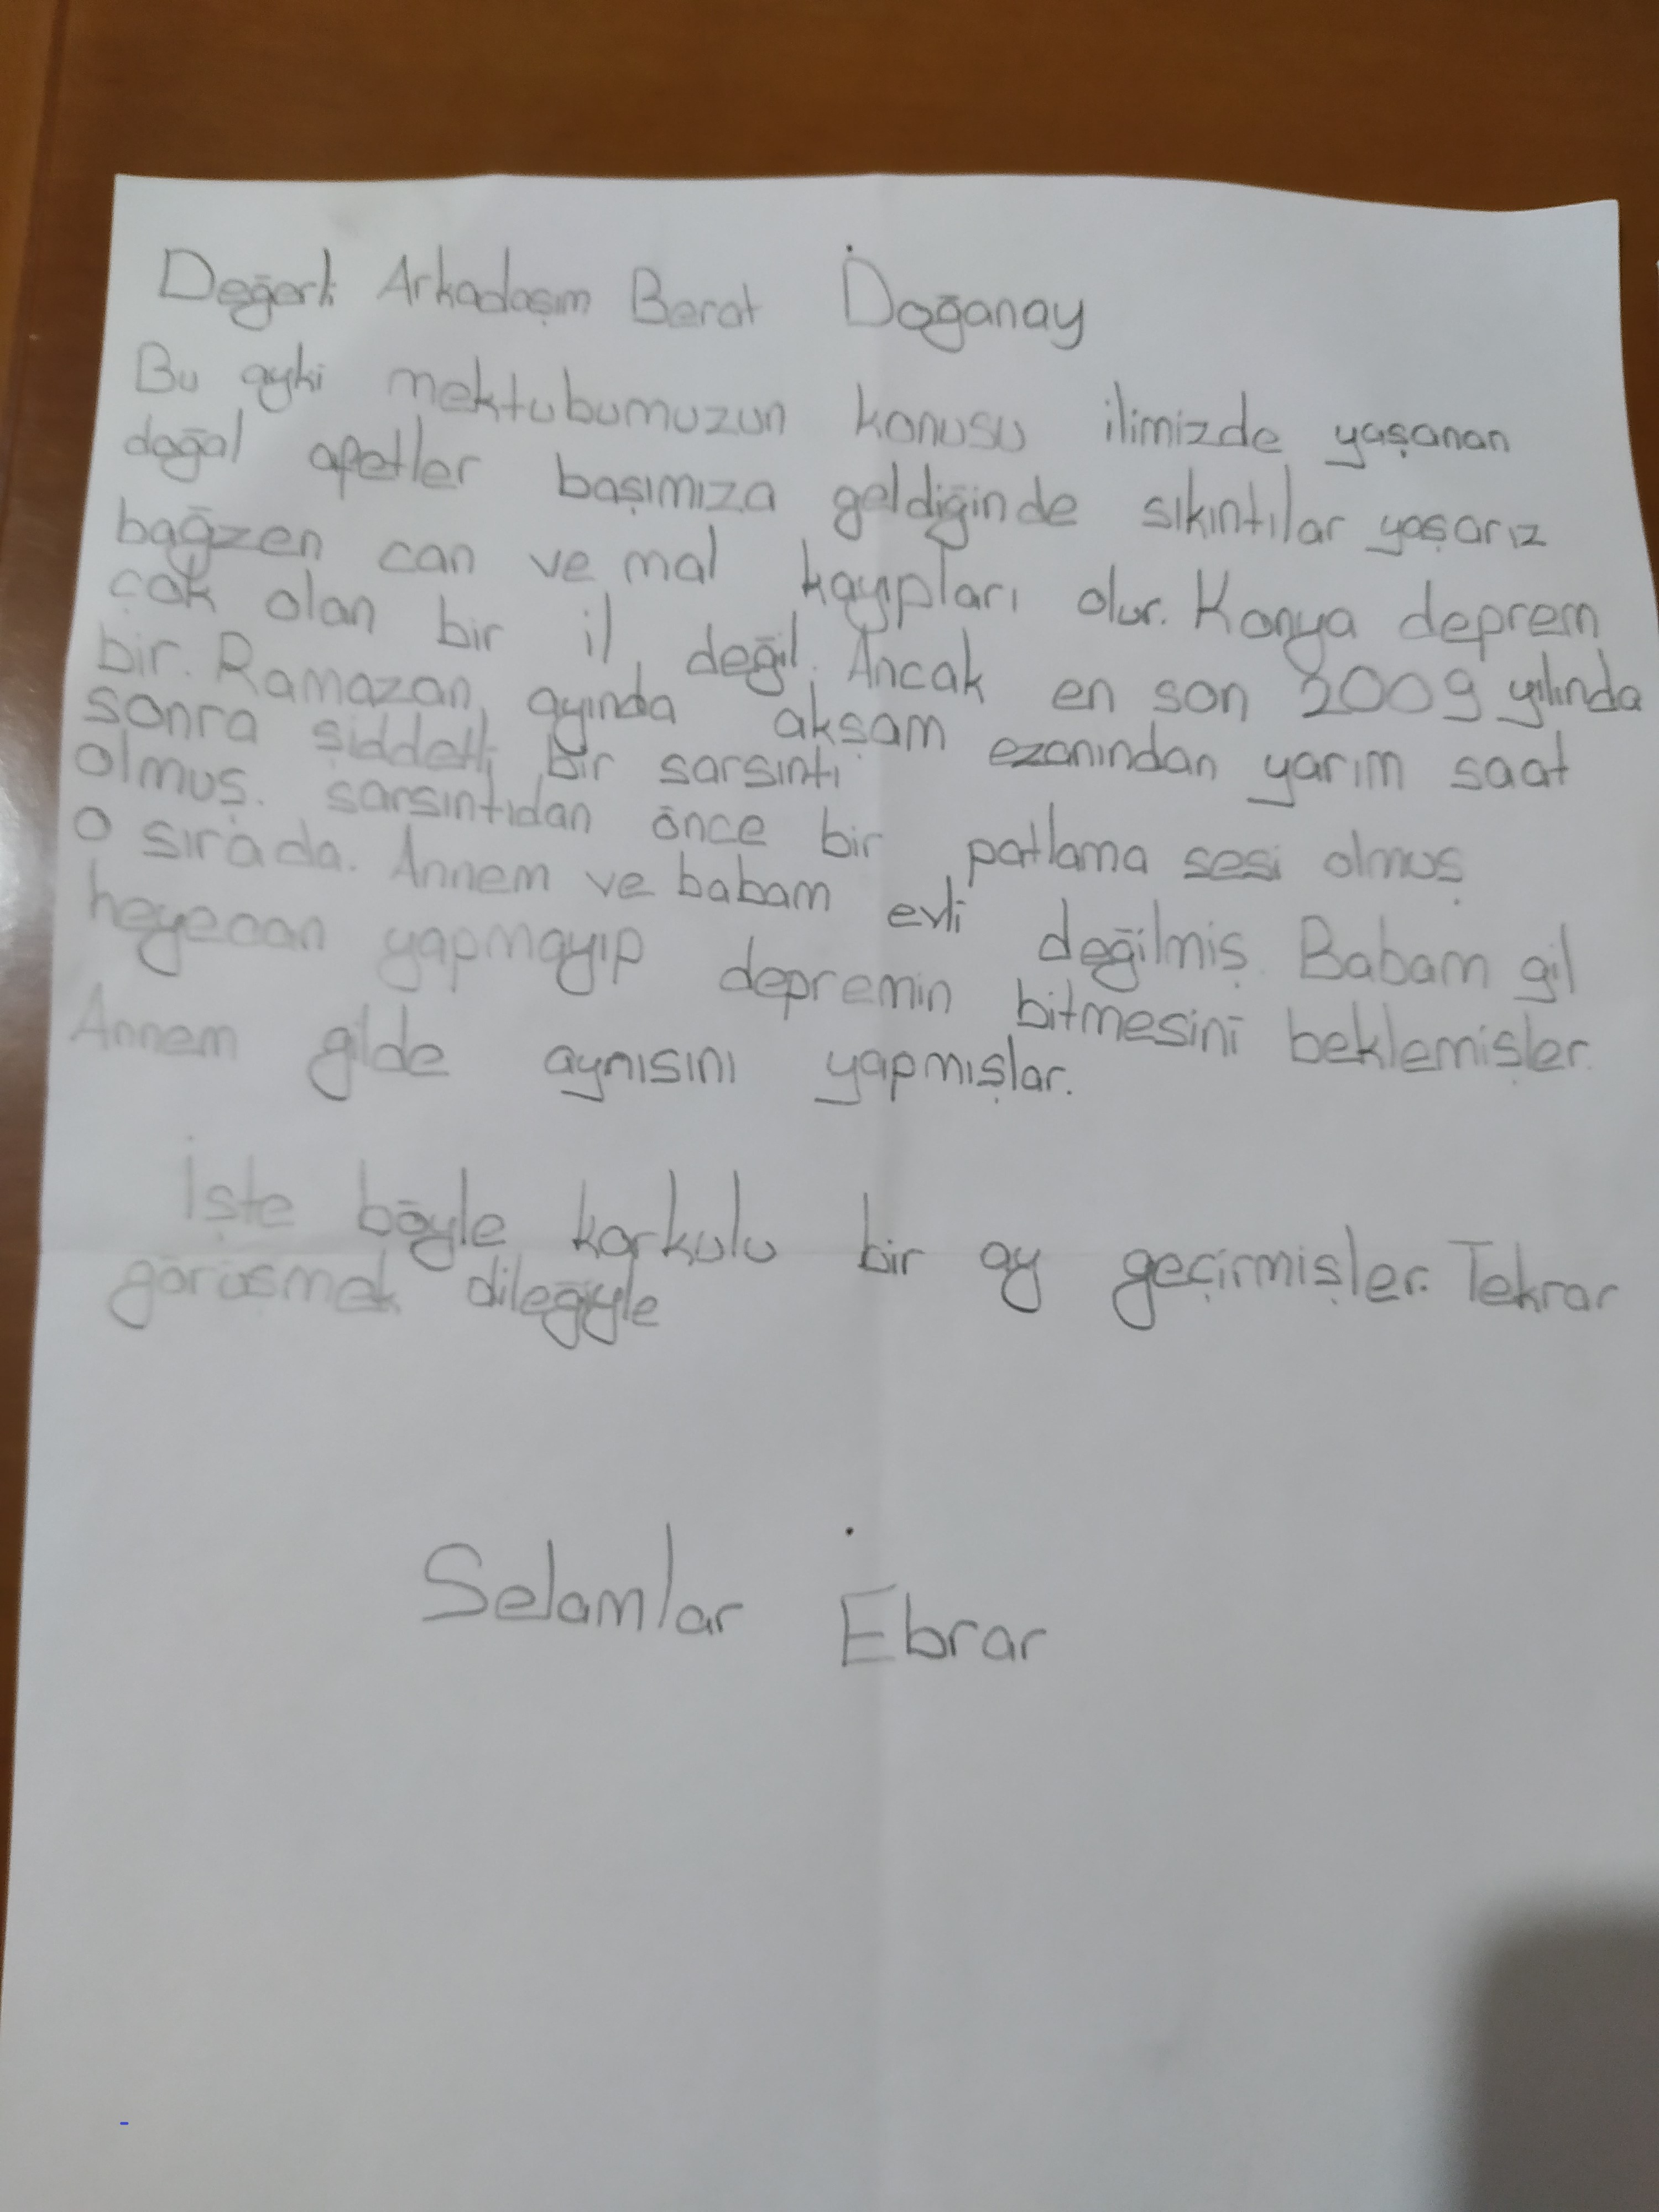 Değerli Arkadaşım Berat Doğanay
Bu ayki mektubumuzun konusu ilimizde yaşanan
doğal afetler başımıza geldiğinde sıkıntılar yaşarız
bağzen can ve mal kayıpları olur. Konya deprem
çok olan bir il değil. Ancak en son 2009 yılında
bir Ramazan ayında akşam ezanından yarım saat
sonra şiddetli bir sarsıntı
olmuş. sarsıntıdan önce bir patlama sesi olmuş
o sırada. Annem ve babam evli değilmiş. Babam gil
heyecan yapmayıp depremin bitmesini beklemişler.
Annem gilde aynısını yapmışlar.
İşte böyle korkulu bir ay geçirmişler. Tekrar
görüşmek dileğiyle
Selamlar Ebrar